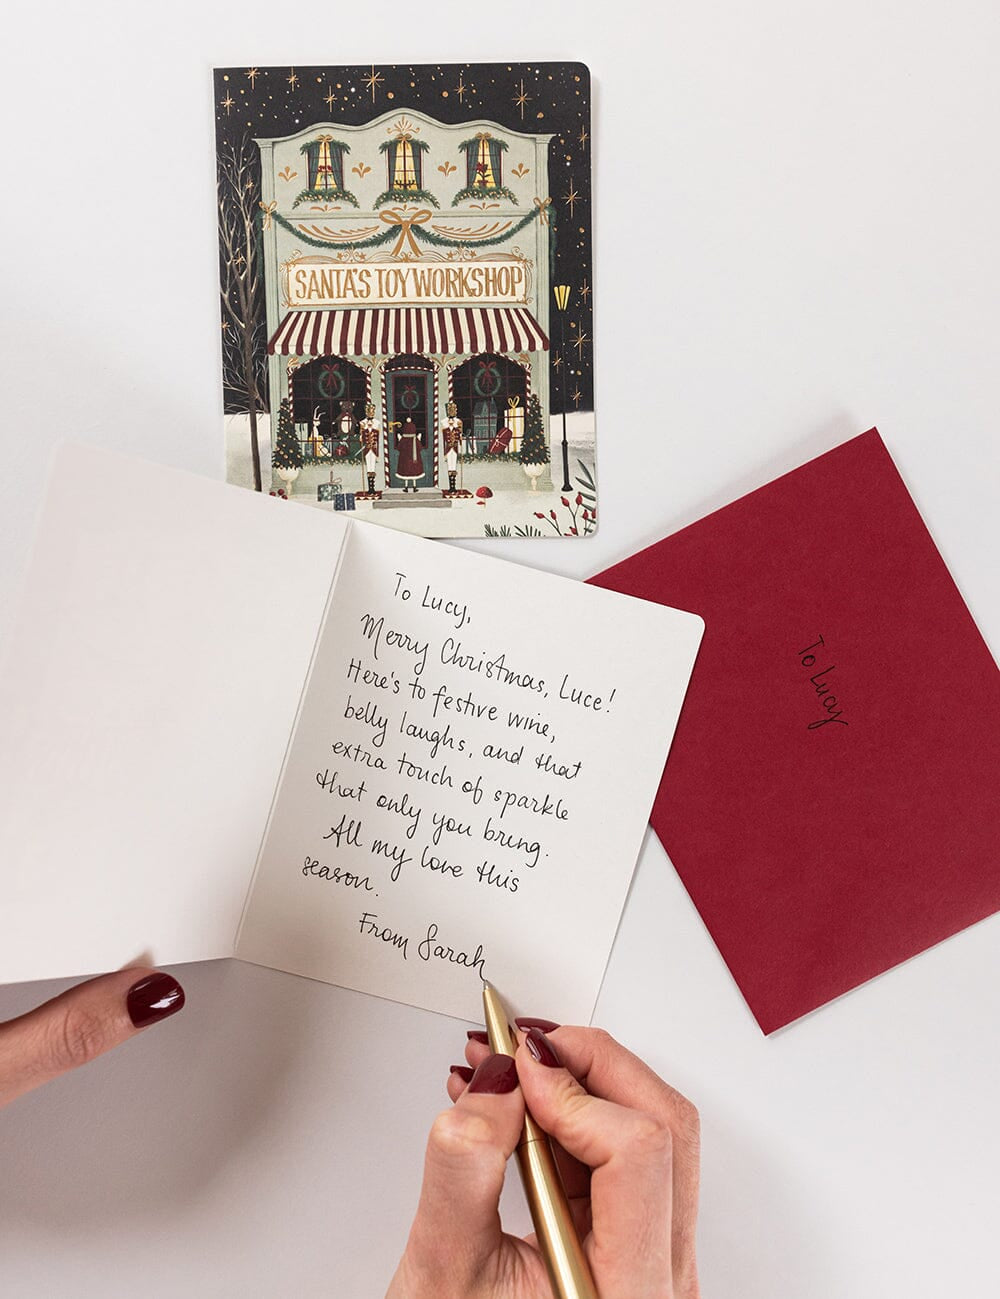 SANTA'S TOY WORKSHOP
To Lucy,
Merry Christmas, Luce!
Here's to festive wine,
belly laughs, and that
extra touch of sparkle
that only you bring.
All my love this
season.
From Sarah
To Lucy